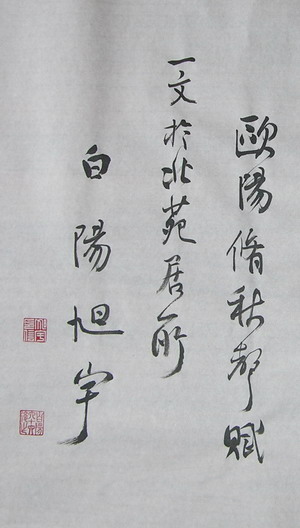 歐陽脩秋聲賦
一文於北苑居所
白陽旭宇